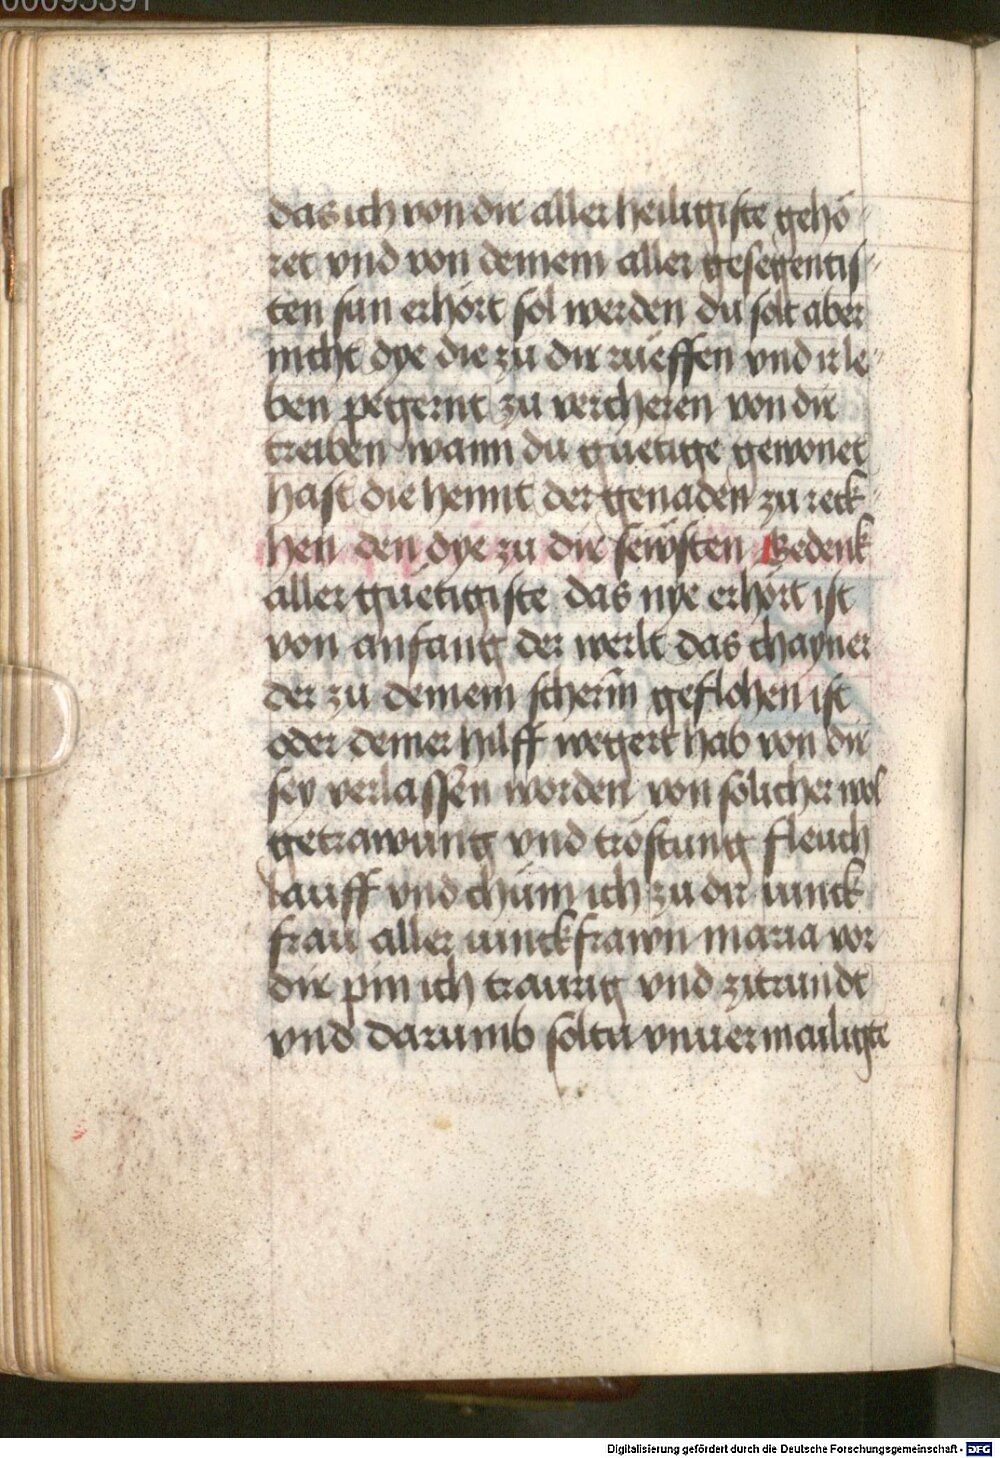 00095391
das ich von dir aller heiligiste gehö-
ret vnd von deinem aller gesegentis-
ten sun erhört sol werden du solt aber
nicht dye die zu dir rüeffen vnd ir le-
ben pegernt zu vercheren von dir
treiben wann du guetige gewonet
hast die hennt der genaden zu reck-
hen den dye zu dir sewfften Gedenk
aller guetigiste das nye erhört ist
von anfang der werlt das chayner
der zu deinem scherm geflohen ist
oder deiner hilff wegert hab von dir
sey verlassen worden von sölicher wol
getrawung vnd tröstung fleuch
lauff vnd chüm ich zu dir iunck
frau aller iunckfrawn maria vor
dir pin ich traurig vnd zitrundt
vnd darumb soltu vnuermailigte
Digitalisierung gefördert durch die Deutsche Forschungsgemeinschaft - DFG